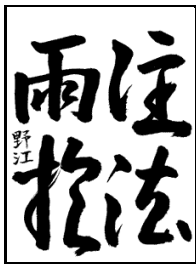 注法
雨於
野江